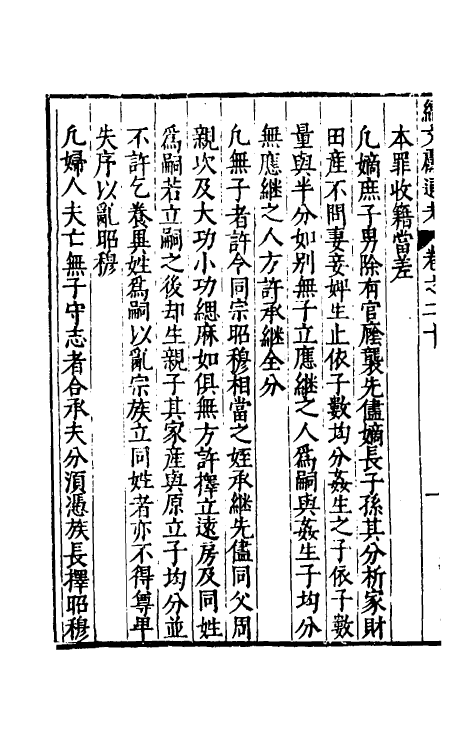 續文獻通考 卷之二十
本罪收籍當差
凡嫡庶子男除有官廕襲先儘嫡長子孫其分析家財
田産不問妻妾婢生止依子數均分姦生之子依子數
量與半分如別無子立應繼之人爲嗣與姦生子均分
無應繼之人方許承繼全分
凡無子者許令同宗昭穆相當之姪承繼先儘同父周
親次及大功小功緦麻如俱無方許擇立遠房及同姓
爲嗣若立嗣之後却生親子其家産與原立子均分並
不許乞養異姓爲嗣以亂宗族立同姓者亦不得尊卑
失序以亂昭穆
凡婦人夫亡無子守志者合承夫分湏憑族長擇昭穆